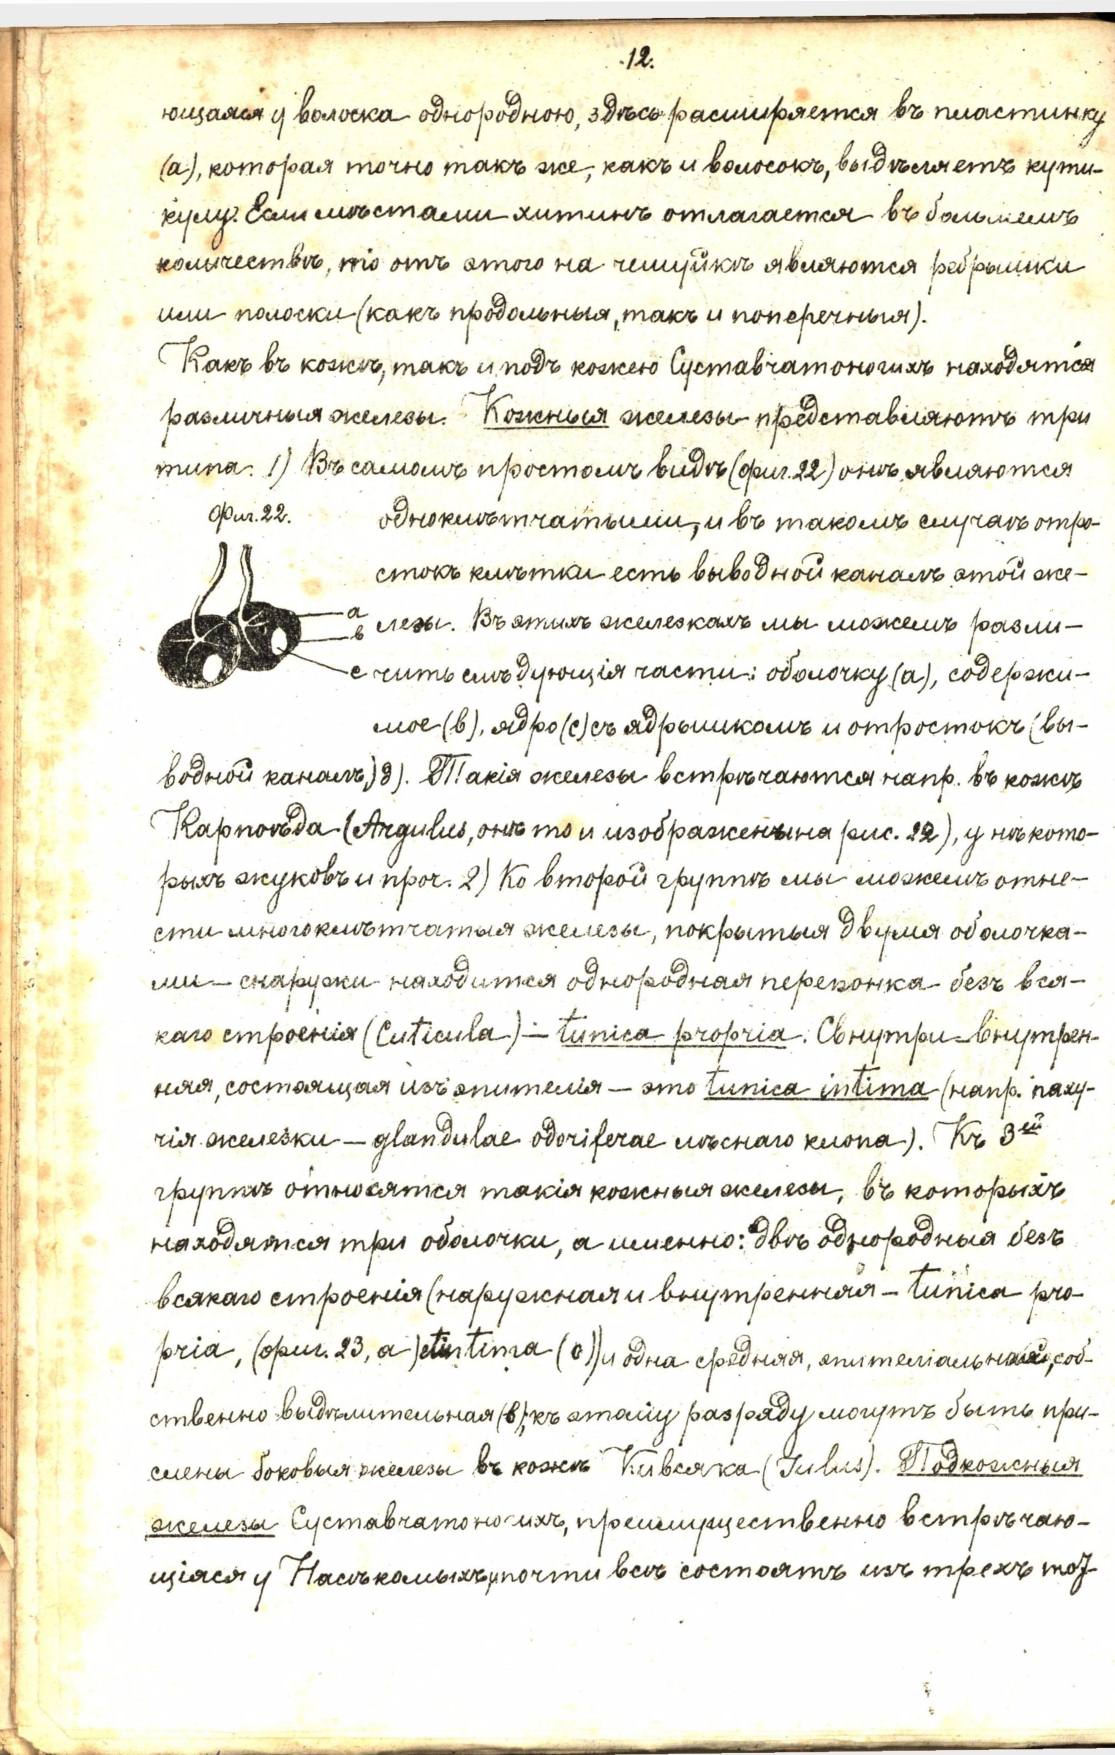 12.
ющаяся у волоска однородною, здѣсь расширяется въ пластинку
(а), которая точно такъ же, какъ и волосокъ, выдѣляетъ кути-
кулу. Если мѣстами хитинъ отлагается въ большемъ
количествѣ, то отъ этого на чешуйкѣ являются ребрышки
или полоски (какъ продольныя, такъ и поперечныя).
Какъ въ кожѣ, такъ и подъ кожею Суставчатоногихъ находятся
различныя железы. Кожныя железы представляютъ три
типа: 1) Въ самомъ простомъ видѣ (фиг. 22) онѣ являются
Фиг. 22.
одноклѣтчатыми, и въ такомъ случаѣ отро-
стокъ клѣтки есть выводной каналъ этой же-
а
в
лезы. Въ этихъ железкахъ мы можемъ разли-
с
чить слѣдующія части: оболочку (а), содержи-
мое (в), ядро (с) съ ядрышкомъ и отростокъ (вы-
водной каналъ) д). Такія железы встрѣчаются напр. въ кожѣ
Карпоѣда (Argulus, онѣ то и изображены на рис. 22), у нѣкото-
рыхъ жуковъ и проч. 2) Ко второй группѣ мы можемъ отне-
сти многоклѣтчатыя железы, покрытыя двумя оболочка-
ми — снаружи находится однородная перепонка безъ вся-
каго строенія (Cuticula) — tunica propria. Свнутри — внутрен-
няя, состоящая изъ эпителія — это tunica intima (напр. паху-
чія железки — glandulae odoriferae лѣснаго клопа). Къ 3ей
группѣ относятся такія кожныя железы, въ которыхъ
находятся три оболочки, а именно: двѣ однородныя безъ
всякаго строенія (наружная и внутренняя — tunica pro-
pria, (фиг. 23, а) et intima (с)) и одна средняя, эпителіальная, соб-
ственно выдѣлительная (в); къ этому разряду могутъ быть при-
слены боковыя железы въ кожѣ Кивсяка (Iulus). Подкожныя
железы Суставчатоногихъ, преимущественно встрѣчаю-
щіяся у Насѣкомыхъ, почти всѣ состоятъ изъ трехъ